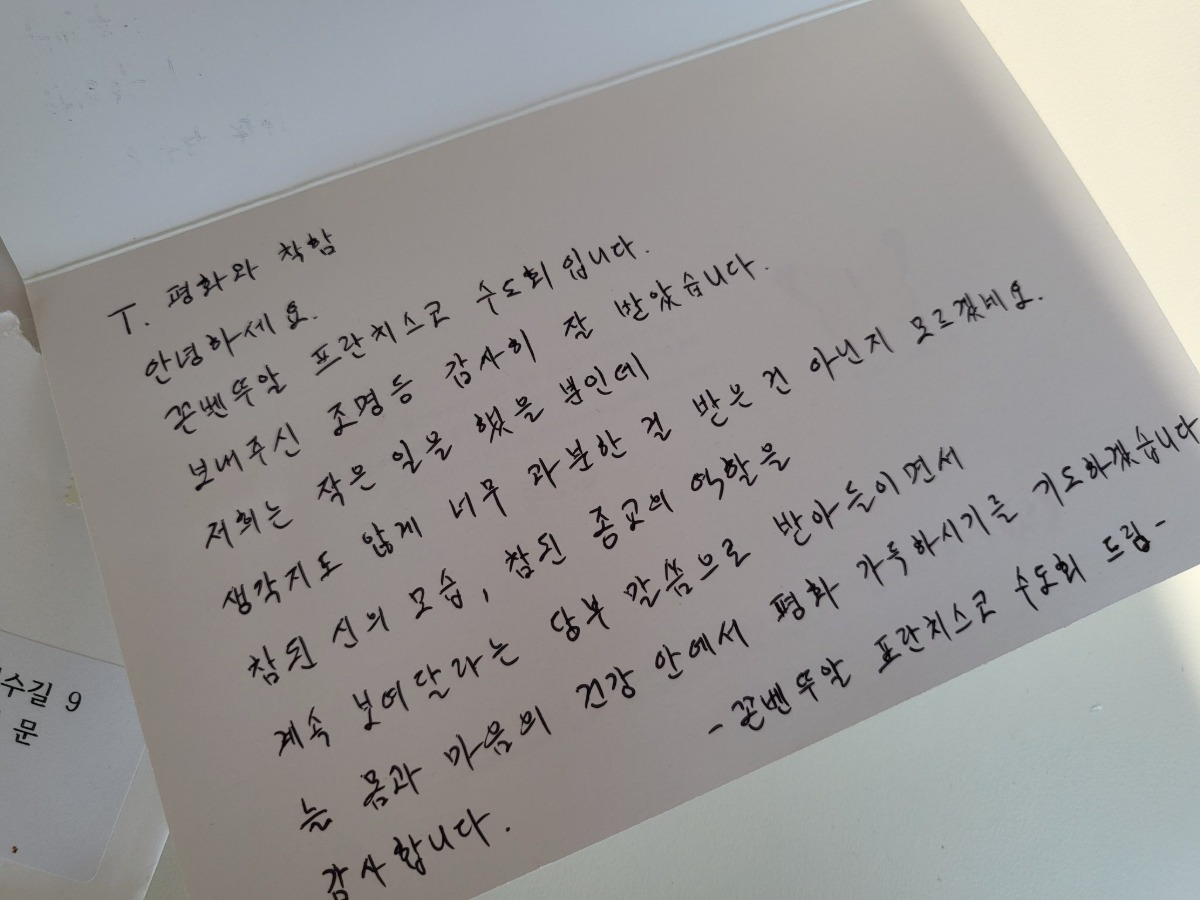 T. 평화와 착함
안녕하세요.
꼰벤뚜알 프란치스코 수도회입니다.
보내주신 조명등 감사히 잘 받았습니다.
저희는 작은 일을 했을 뿐인데
생각지도 않게 너무 과분한 걸 받은 건 아닌지 모르겠네요.
참된 신의 모습, 참된 종교의 역할을
계속 보여달라는 당부 말씀으로 받아들이면서
늘 몸과 마음의 건강 안에서 평화 가득하시기를 기도하겠습니다
감사합니다.
-꼰벤뚜알 프란치스코 수도회 드림-
수길 9
문